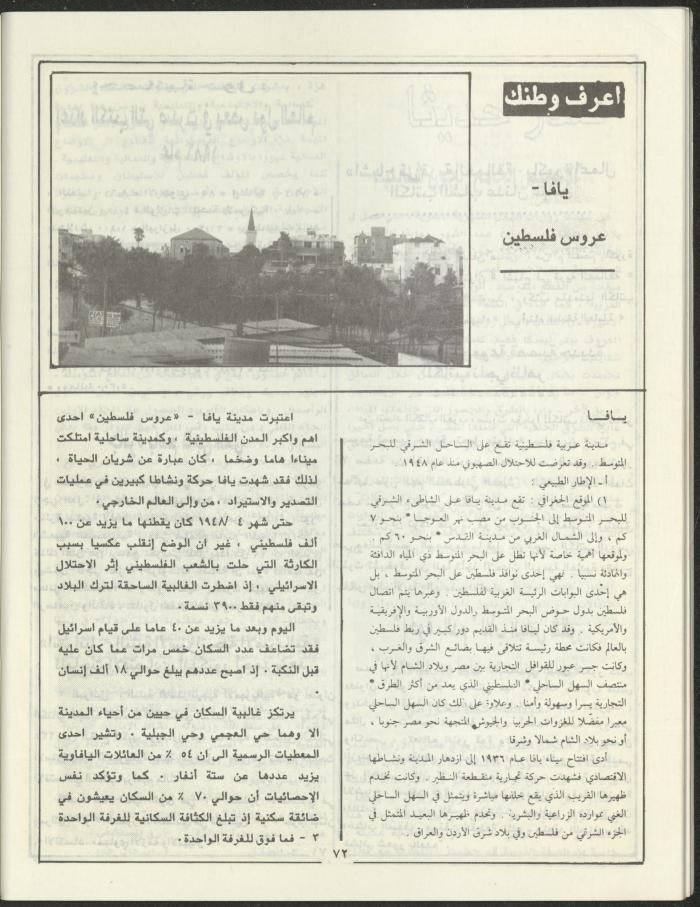 اعرف وطنك
يافا -
عروس فلسطين
يافا
مدينة عربية فلسطينية تقع على الساحل الشرقي للبحر
المتوسط . وقد تعرضت للاحتلال الصهيوني منذ عام ١٩٤٨
أ - الإطار الطبيعي :
١) الموقع الجغرافي : تقع مدينة يافا على الشاطىء الشرقي
للبحر المتوسط إلى الجنوب من مصب نهر العوجا * بنحو ٧
كم ، وإلى الشمال الغربي من مدينة القدس * بنحو ٦٠ كم
ولموقعها أهمية خاصة لأنها تطل على البحر المتوسط ذي المياه الدافئة
والهادئة نسبيا . فهي إحدى نوافذ فلسطين على البحر المتوسط ، بل
هي إحدى البوابات الرئيسة الغربية لفلسطين . وعبرها يتم اتصال
فلسطين بدول حوض البحر المتوسط والدول الأوربية والإفريقية
والأمريكية . وقد كان ليافا منذ القديم دور كبير في ربط فلسطين
بالعالم فكانت محطة رئيسة تتلاقى فيها بضائع الشرق والغرب ،
وكانت جسر عبور للقوافل التجارية بين مصر وبلاد الشام لأنها في
منتصف السهل الساحلي * الفلسطيني الذي يعد من أكثر الطرق *
التجارية يسرا وسهولة وأمنا . وعلاوة على ذلك كان السهل الساحلي
معبرا مفضلا للغزوات الحربية والجيوش المتجهة نحو مصر جنوبا ،
أو نحو بلاد الشام شمالا وشرقا .
أدى افتتاح ميناء يافا عام ١٩٣٦ إلى ازدهار المدينة ونشاطها
الاقتصادي فشهدت حركة تجارية منقطعة النظير . وكانت تخدم
ظهيرها القريب الذي يقع خلفها مباشرة ويتمثل في السهل الساحلي
الغني بموارده الزراعية والبشرية . وتخدم ظهيرها البعيد المتمثل في
الجزء الشرقي من فلسطين وفي بلاد شرق الأردن والعراق .
اعتبرت مدينة يافا - «عروس فلسطين» احدى
اهم واكبر المدن الفلسطينية ، وكمدينة ساحلية امتلكت
ميناءا هاما وضخما ، كان عبارة عن شريان الحياة ،
لذلك فقد شهدت يافا حركة ونشاطا كبيرين في عمليات
التصدير والاستيراد ، من وإلى العالم الخارجي .
حتى شهر ٤ / ١٩٤٨ كان يقطنها ما يزيد عن ١٠٠
ألف فلسطيني ، غير ان الوضع إنقلب عكسيا بسبب
الكارثة التي حلت بالشعب الفلسطيني إثر الاحتلال
الاسرائيلي ، إذ اضطرت الغالبية الساحقة لترك البلاد
وتبقى منهم فقط ٣٩٠٠ نسمة .
اليوم وبعد ما يزيد عن ٤٠ عاما على قيام اسرائيل
فقد تضاعف عدد السكان خمس مرات عما كان عليه
قبل النكبة . إذ اصبح عددهم يبلغ حوالي ١٨ ألف إنسان
.
يرتكز غالبية السكان في حيين من أحياء المدينة
الا وهما حي العجمي وحي الجبلية . وتشير احدى
المعطيات الرسمية الى ان ٥٤ ٪ من العائلات اليافاوية
يزيد عددها عن ستة أنفار . كما وتؤكد نفس
الإحصائيات أن حوالي ٧٠ ٪ من السكان يعيشون في
ضائقة سكنية إذ تبلغ الكثافة السكانية للغرفة الواحدة
٣ - فما فوق للغرفة الواحدة .
٧٢